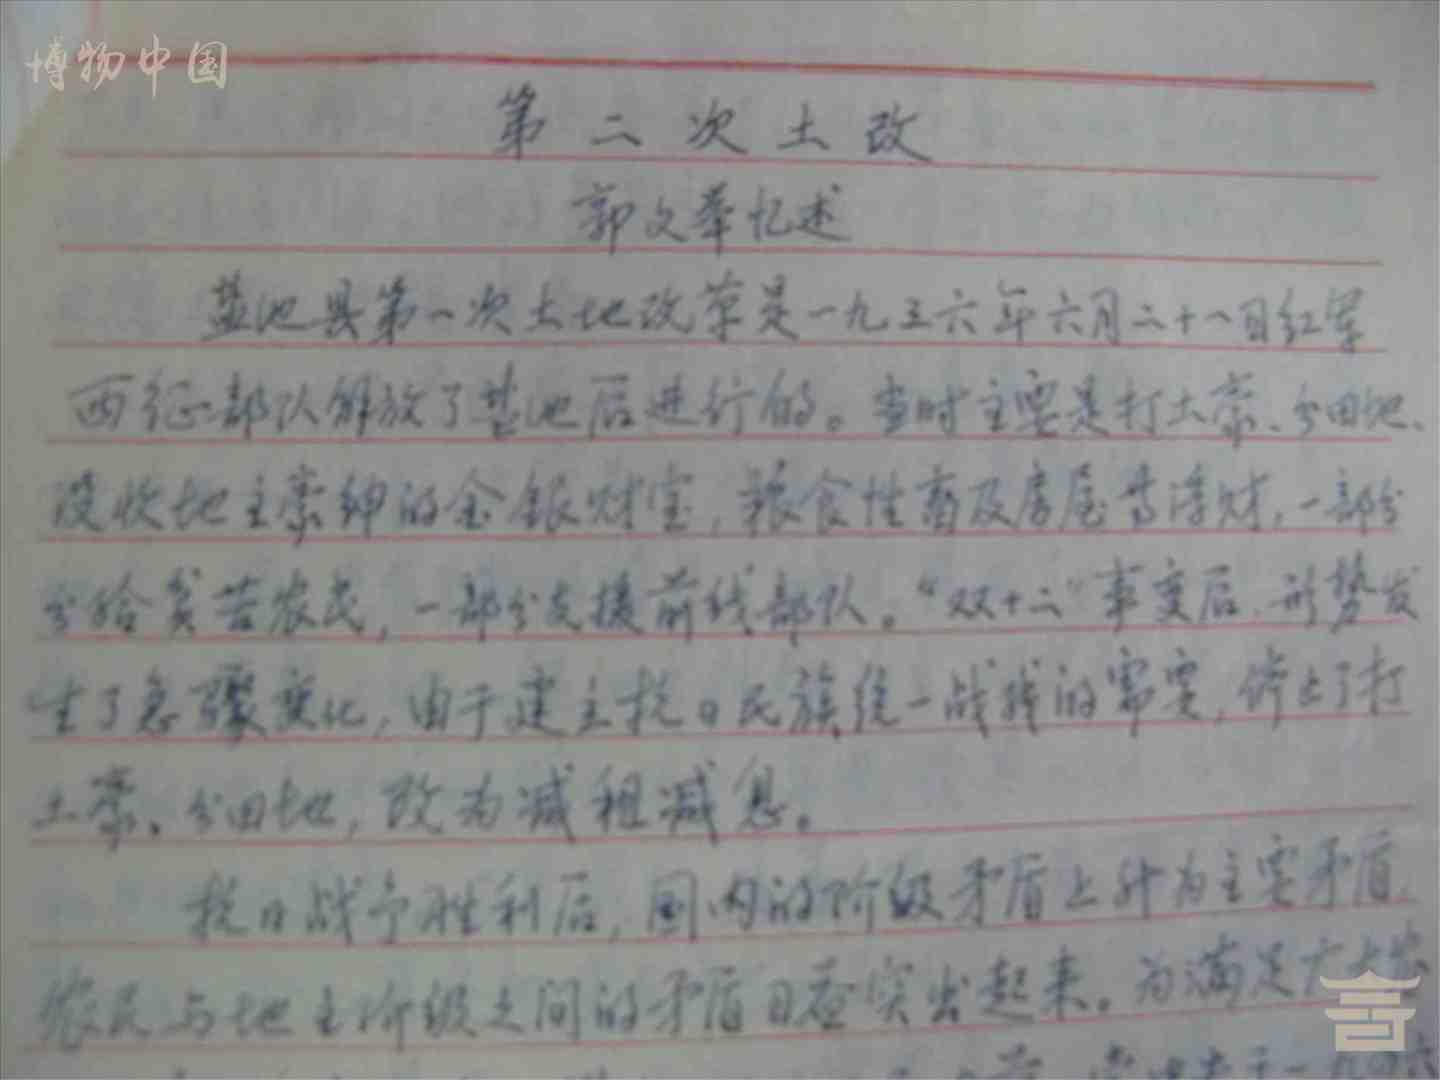 博物中国
第二次土改
郭文华忆述
盐池县第一次土地改革是一九三六年六月二十一日红军
西征部队解放了盐池后进行的。当时主要是打土豪、分田地、
没收地主豪绅的金银财宝,粮食牲畜及房屋等浮财,一部分
分给贫苦农民,一部分支援前线部队。“双十二”事变后,形势发
生了急骤变化,由于建立抗日民族统一战线的需要,停止了打
土豪、分田地,改为减租减息。
抗日战争胜利后,国内的阶级矛盾上升为主要矛盾,
农民与地主阶级之间的矛盾日益突出起来。为满足广大农